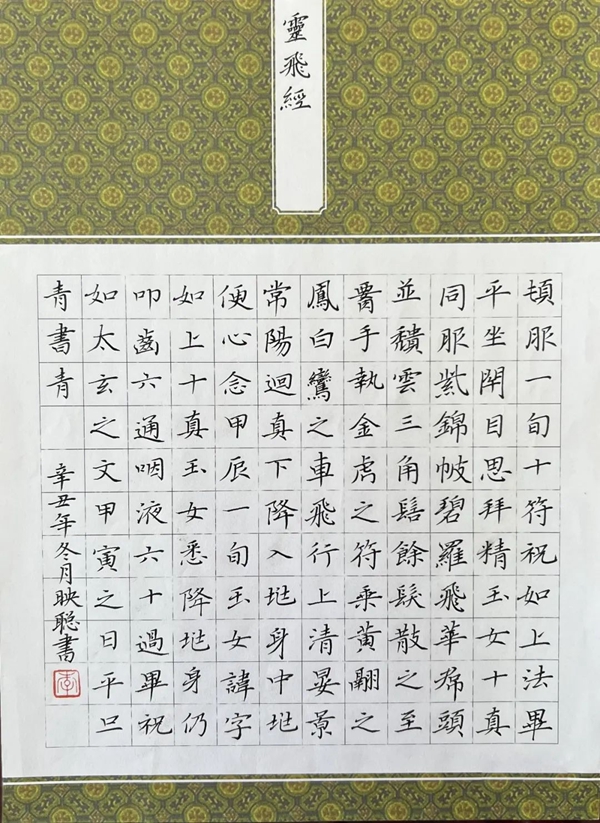 靈飛經
頓服一旬十符祝如上法畢
平坐閉目思拜精玉女十真
同服紫錦帔碧羅飛華帬頭
並穨雲三角髻餘髮散之至
𦝫手執金虎之符乘黄翮之
鳳白鸞之車飛行上清晏景
常陽迴真下降入垗身中垗
便心念甲辰一旬玉女諱字
如上十真玉女悉降垗身仍
叩齒六通咽液六十過畢祝
如太玄之文甲寅之日平旦
青書青
辛丑年冬月映聪書
李